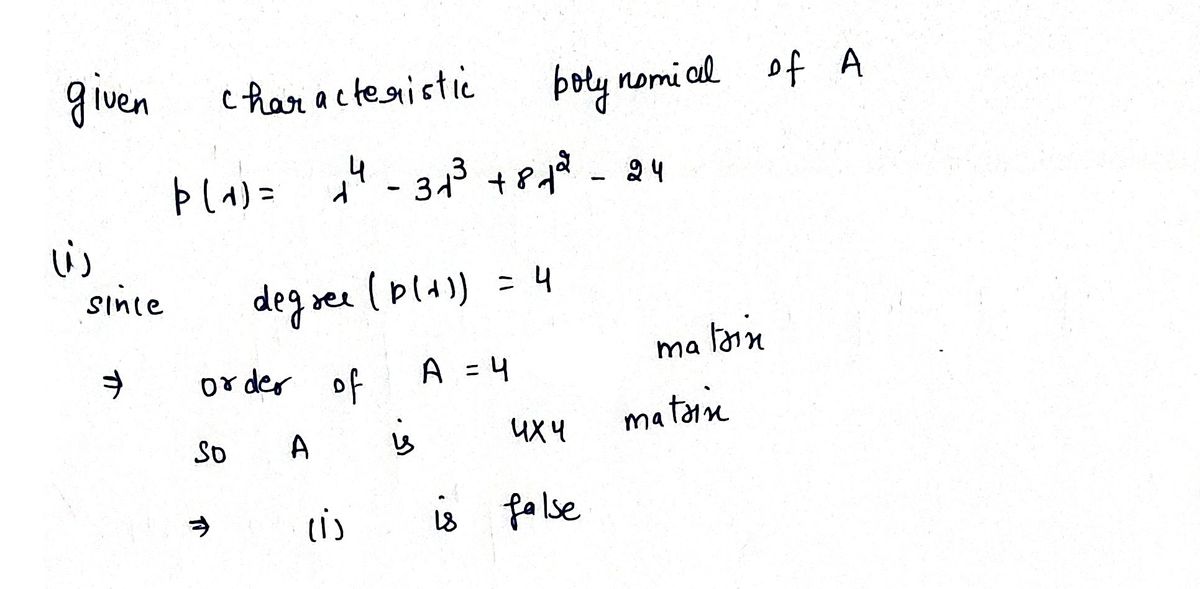 given characteristic polynomial of A
p(λ) = λ⁴ - 3λ³ + 8λ² - 24
(i)
since degree (p(λ)) = 4
⇒ order of A = 4 matrix
so A is 4×4 matrix
⇒ (i) is false